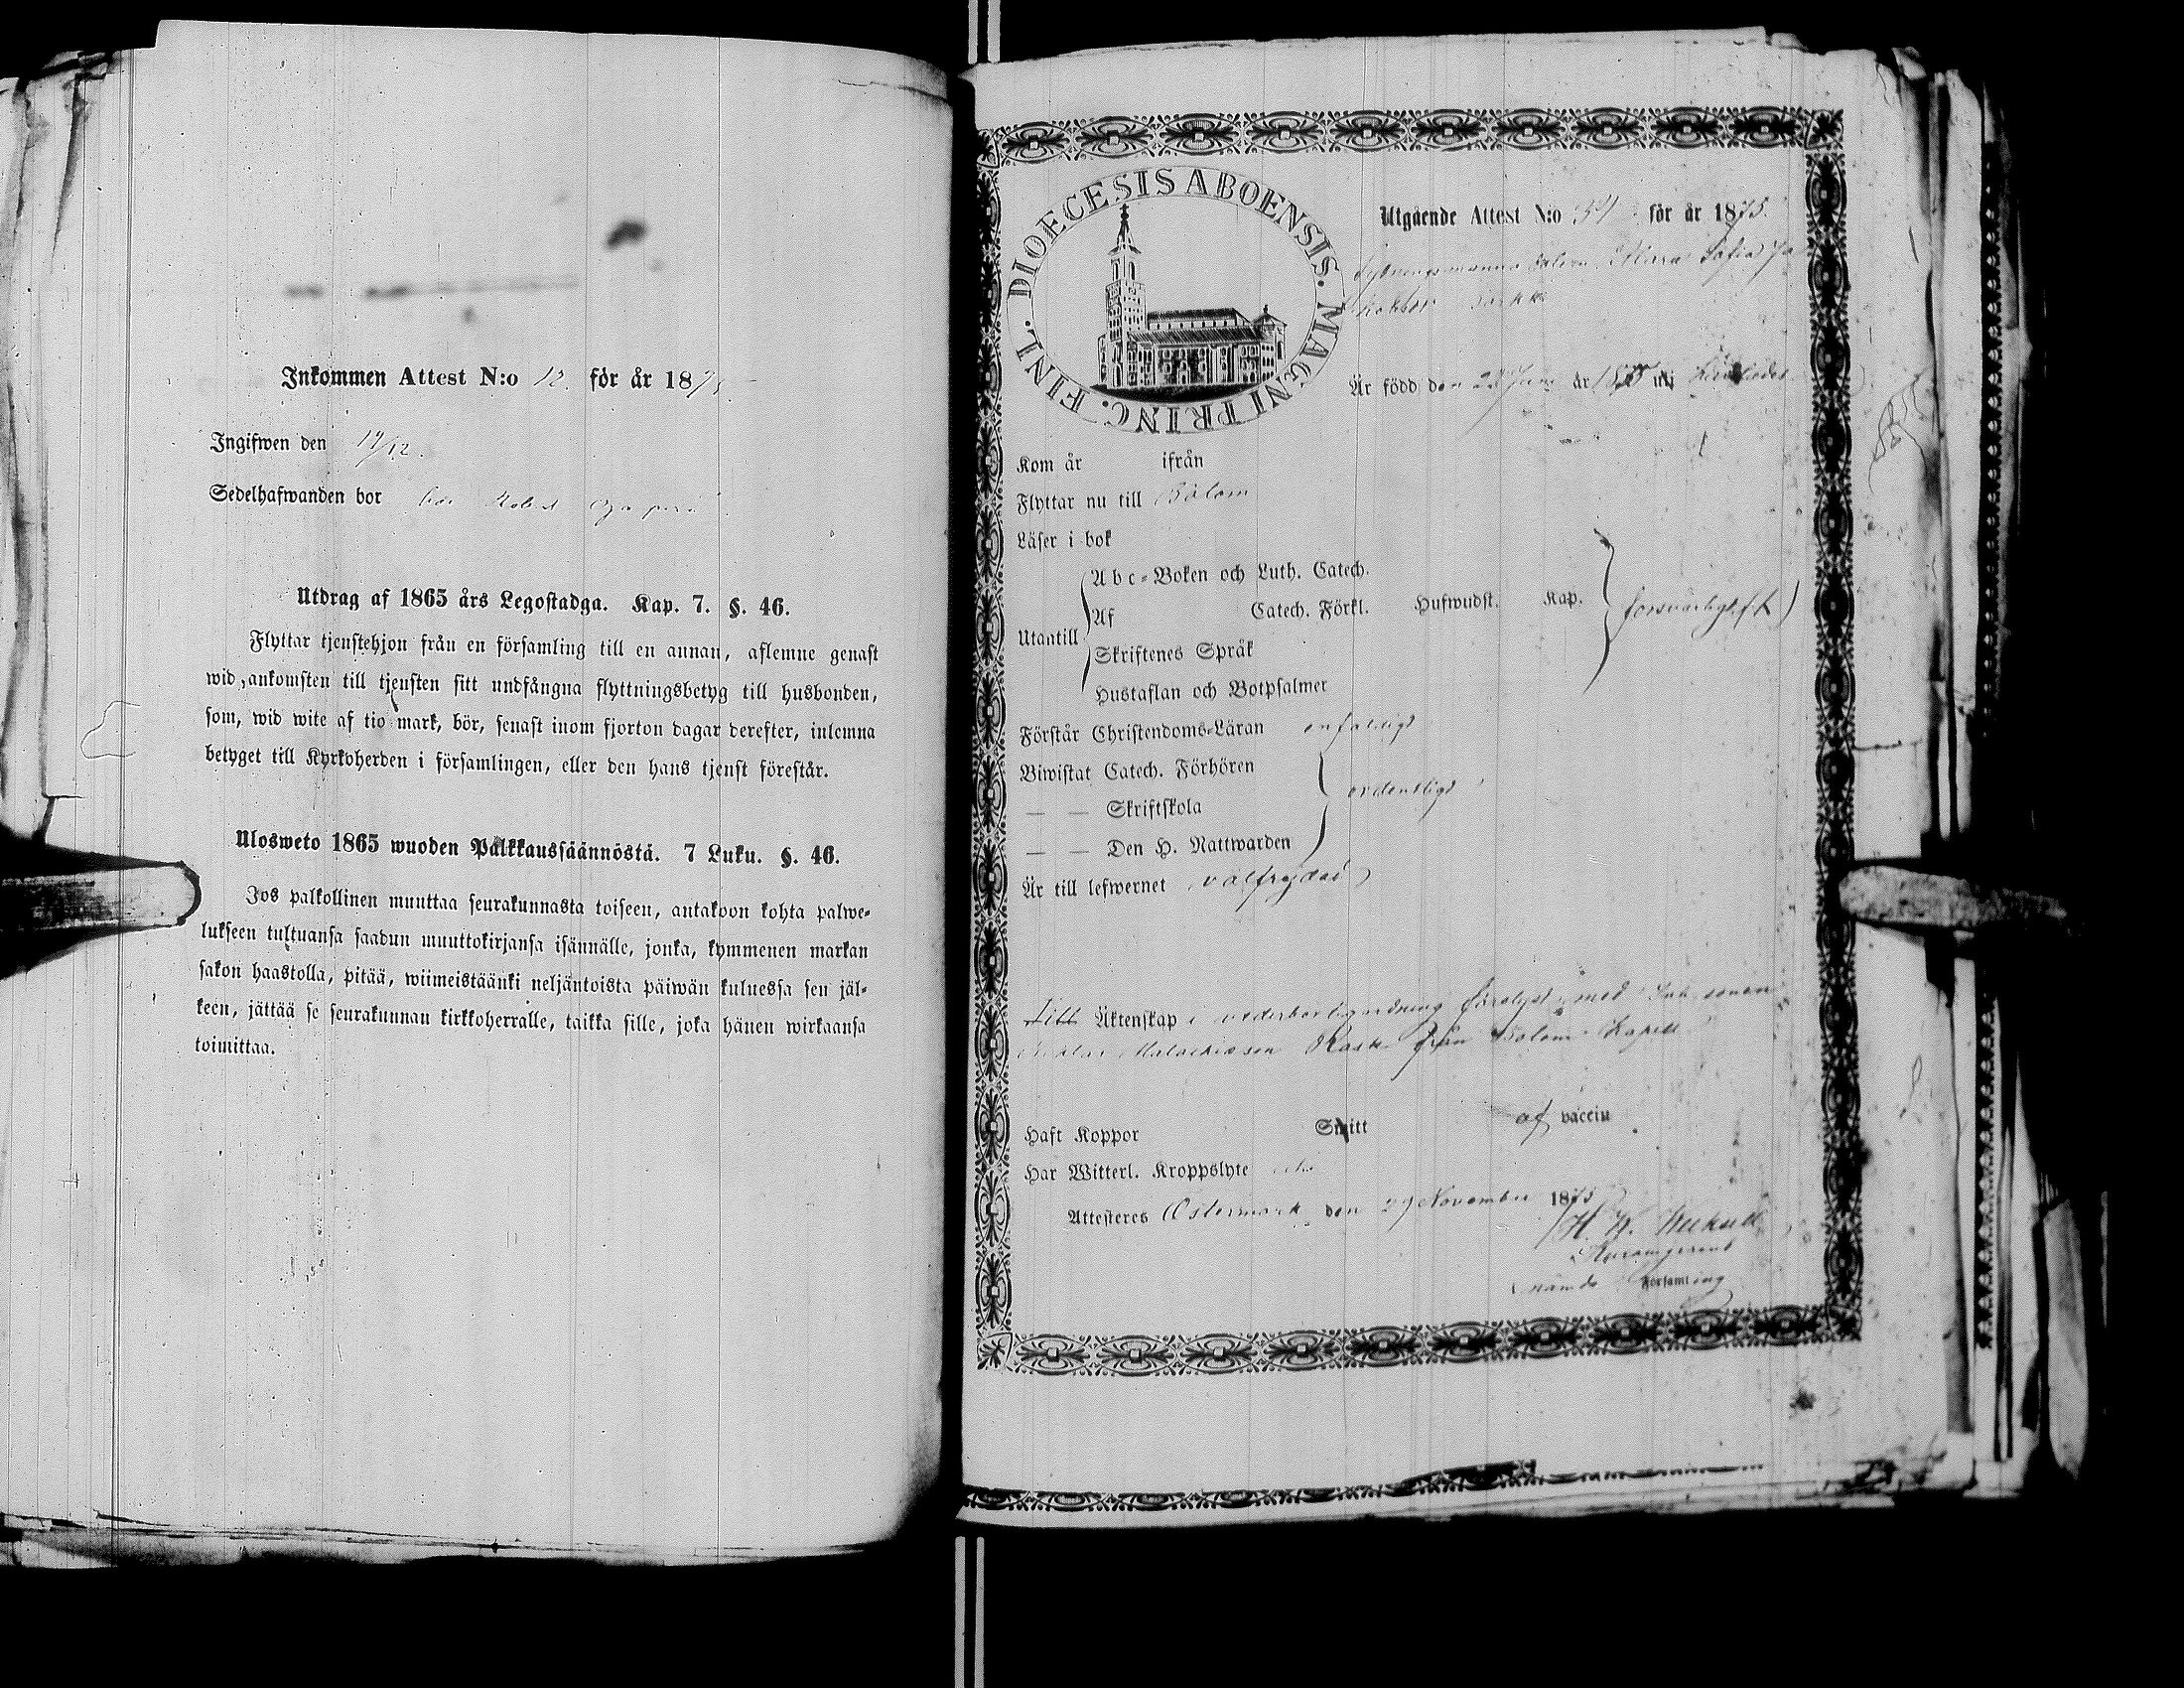 Inkommen Attest N:o 12. för år 187
Ingifwen den 19/12.
Sedelhafwanden bor hos
Utdrag af 1865 års Legostadga. Kap. 7. §. 46.
Flyttar tjenstehjon från en församling till en annan, aflemne genast
wid ankomsten till tjensten sitt undfångna flyttningsbetyg till husbonden,
som, wid wite af tio mark, bör, senast inom fjorton dagar derefter, inlemna
betyget till Kyrkoherden i församlingen, eller den hans tjenst förestår.
Ulosweto 1865 wuoden Palkkaussäännöstä. 7 Luku. §. 46.
Jos palkollinen muuttaa seurakunnasta toiseen, antakoon kohta palwe-
lukseen tultuansa saadun muuttokirjansa isännälle, jonka, kymmenen markan
sakon haastolla, pitää, wiimeistäänki neljäntoista päiwän kuluessa sen jäl-
keen, jättää se seurakunnan kirkkoherralle, taikka sille, joka hänen wirkaansa
toimittaa.
DIOECESIS ABOENSIS. MAGNI PRINC. FINL.
Utgående Attest N:o 34 för år 1875.
Sofia Ja
Är född den 28 Juni år 18 uti
Kom år ifrån
Flyttar nu till Bölom
Läser i bok
Utantill
Abc-Boken och Luth. Catech.
Af Catech. Förkl. Hufwudst. Kap. försvarligt
Skriftenes Språk
Hustaflan och Botpsalmer
Förstår Christendoms-Läran enfaldigt
Biwistat Catech. Förhören
— — Skriftskola ordentligt
— — Den H. Nattwarden
Är till lefwernet välfrejdad
Till Äktenskap i vederbörlig ordning förelyst med
Malachiasson Rask från Bölom Kapell
Haft Koppor Smitt af vaccin
Har Witterl. Kroppslyte
Attesteres Östermark den 29 November 1875
H. W.
nämde Församling